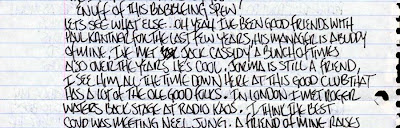 ENUFF OF THIS BABBELING SPEW!
LETS SEE WHAT ELSE. OH YEAH I'VE BEEN GOOD FRIENDS WITH
PAUL KANTNER FOR THE LAST FEW YEARS, HIS MANAGER IS A BUDDY
OF MINE. I'VE MET JACK CASSIDY A BUNCH OF TIMES
ALSO OVER THE YEARS HE'S COOL, JORMA IS STILL A FRIEND,
I SEE HIM ALL THE TIME DOWN HERE AT THIS GOOD CLUB THAT
HAS A LOT OF THE OLE GOOD FOLKS. IN LONDON I MET ROGER
WATERS BACK STAGE AT RADIO KAOS. I THINK THE BEST
WAS MEETING NEEL JUNG. A FRIEND OF MINE RAISES